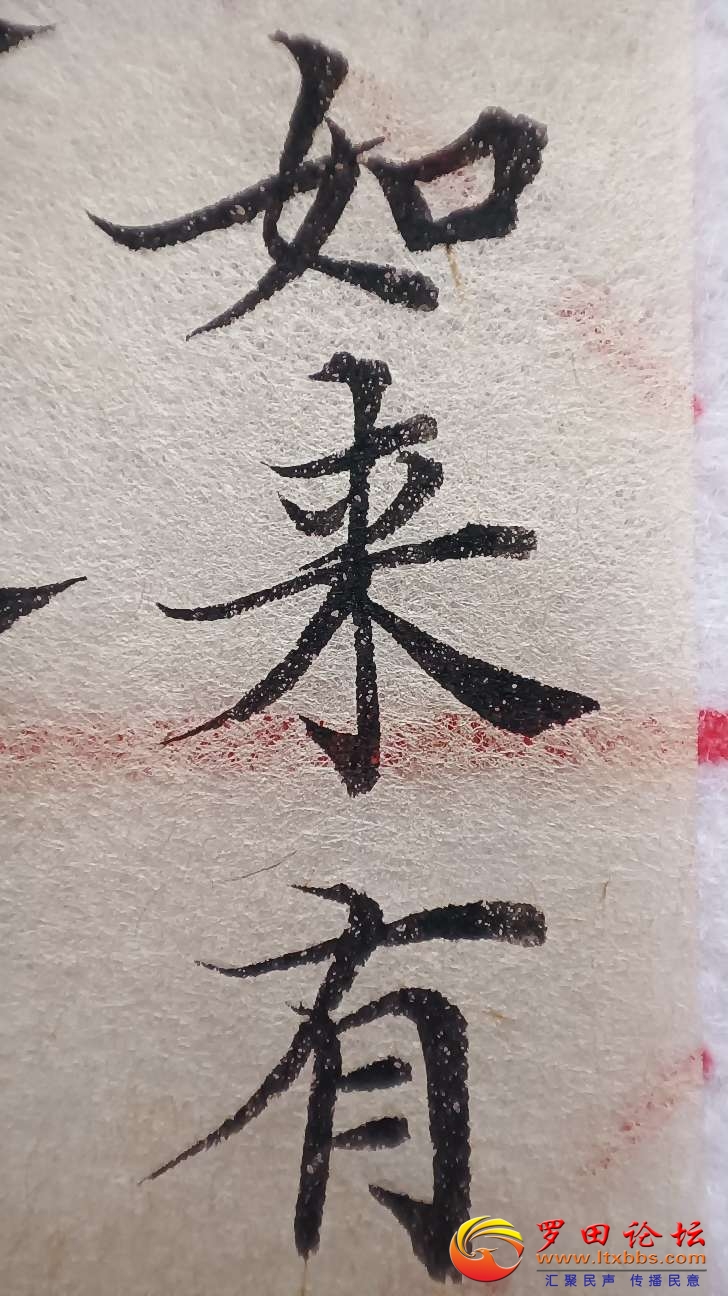 如来有
罗田论坛
www.ltxbbs.com
汇聚民声 传播民意